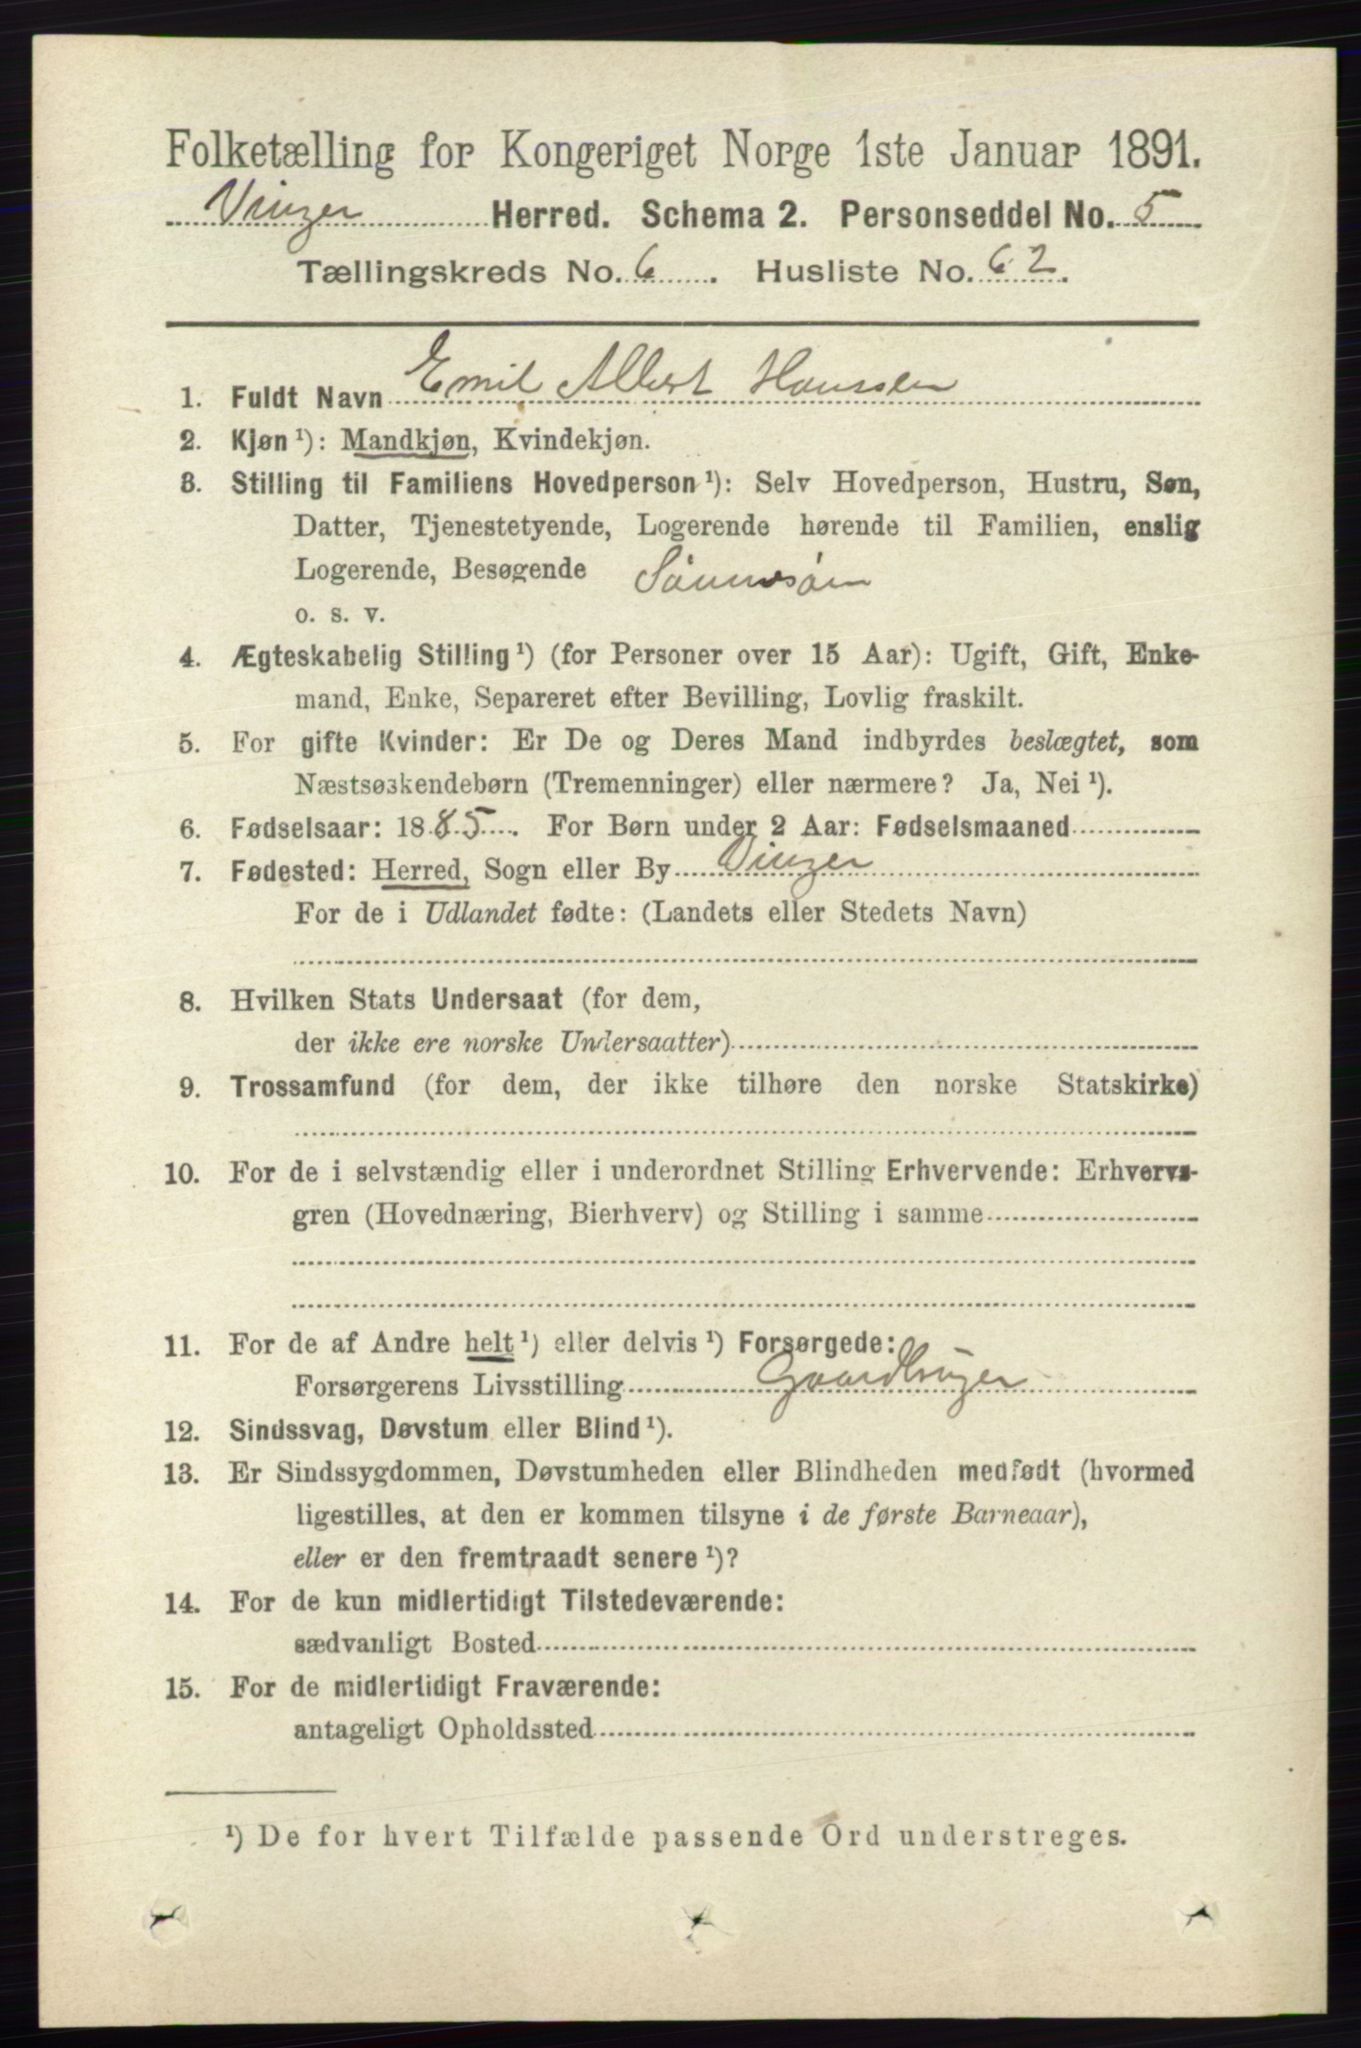 Folketælling for Kongeriget Norge 1ste Januar 1891.
Vinger Herred. Schema 2. Personseddel No. 5
Tællingskreds No. 6. Husliste No. 62.
1. Fuldt Navn Emil Albert Hanssen
2. Kjøn ¹): Mandkjøn, Kvindekjøn.
3. Stilling til Familiens Hovedperson ¹): Selv Hovedperson, Hustru, Søn,
Datter, Tjenestetyende, Logerende hørende til Familien, enslig
Logerende, Besøgende Sønnesøn
o. s. v.
4. Ægteskabelig Stilling ¹) (for Personer over 15 Aar): Ugift, Gift, Enke-
mand, Enke, Separeret efter Bevilling, Lovlig fraskilt.
5. For gifte Kvinder: Er De og Deres Mand indbyrdes beslægtet, som
Næstsøskendebørn (Tremenninger) eller nærmere? Ja, Nei ¹).
6. Fødselsaar: 1885. For Børn under 2 Aar: Fødselsmaaned
7. Fødested: Herred, Sogn eller By Vinger
For de i Udlandet fødte: (Landets eller Stedets Navn)
8. Hvilken Stats Undersaat (for dem,
der ikke ere norske Undersaatter)
9. Trossamfund (for dem, der ikke tilhøre den norske Statskirke)
10. For de i selvstændig eller i underordnet Stilling Erhvervende: Erhvervs-
gren (Hovednæring, Bierhverv) og Stilling i samme
11. For de af Andre helt ¹) eller delvis ¹) Forsørgede:
Forsørgerens Livsstilling Gaardbruger
12. Sindssvag, Døvstum eller Blind ¹).
13. Er Sindssygdommen, Døvstumheden eller Blindheden medfødt (hvormed
ligestilles, at den er kommen tilsyne i de første Barneaar),
eller er den fremtraadt senere ¹)?
14. For de kun midlertidigt Tilstedeværende:
sædvanligt Bosted
15. For de midlertidigt Fraværende:
antageligt Opholdssted
¹) De for hvert Tilfælde passende Ord understreges.